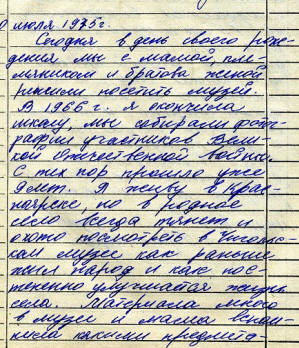 июля 1975г.
Сегодня в день своего рож-
дения мы с мамой, пле-
мянником и братова женой
решили посетить музей.
В 1966 г. я окончила
школу, мы собирали фото-
графии участников Вели-
кой Отечественной войны.
С тех пор прошло уже
9 лет. Я живу в Крас-
ноярске, но в родное
село всегда тянет и
охота посмотреть в
ском музее как раньше
жил народ и как пос-
тепенно улучшатся жизнь
села. Материала много
в музее и мама вспом-
нила какими предмета-